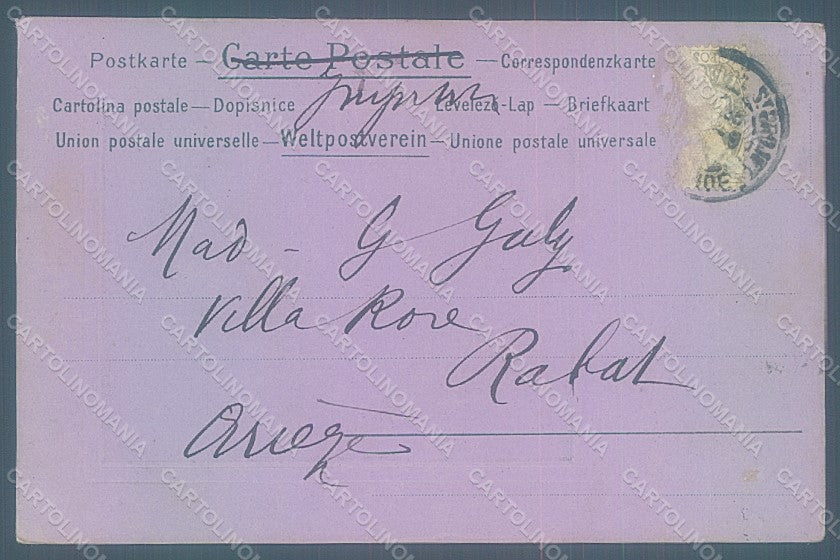 Postkarte – Carte Postale – Correspondenzkarte
Cartolina postale – Dopisnice Levelező-Lap – Briefkaart
Union postale universelle – Weltpostverein – Unione postale universale
Mad – G Galy
Villa Rose
Rabat
Ariège
CARTOLINOMANIA